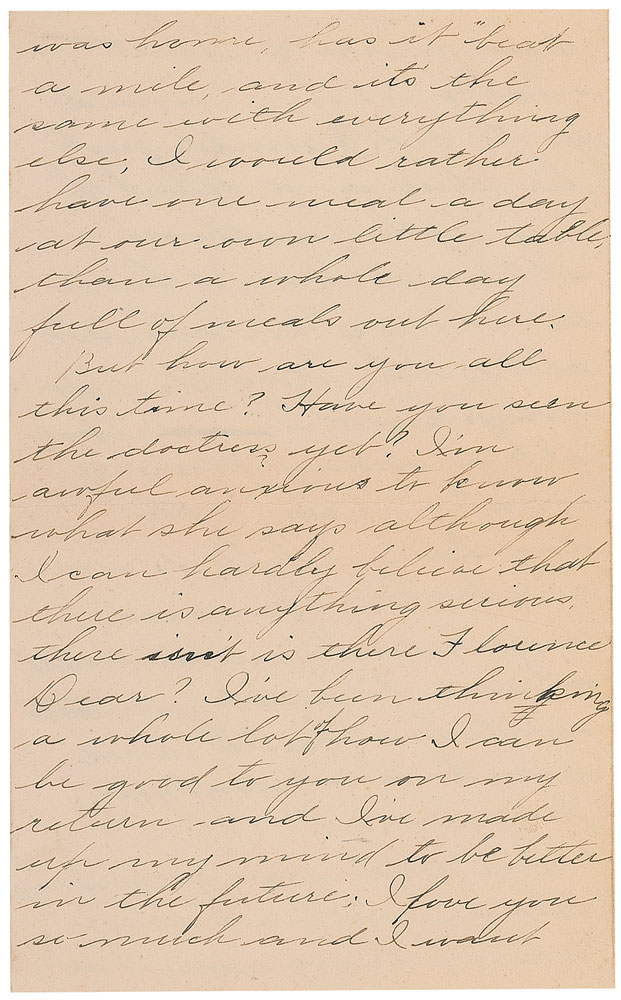 was home, has it "beat
a mile, and its the
same with everything
else, I would rather
have one meal a day
at our own little table,
than a whole day
full of meals out here.
But how are you all
this time? Have you seen
the doctress yet? I'm
awful anxious to know
what she says although
I can hardly believe that
there is anything serious,
there isn't is there Florence
Dear? I've been thinking
a whole lot of how I can
be good to you on my
return and I've made
up my mind to be better
in the future. I love you
so much and I want